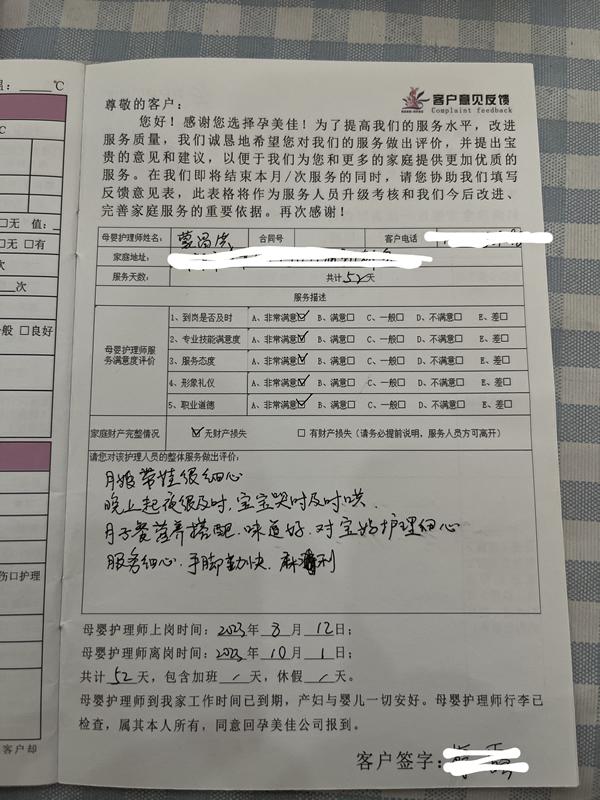 温：____℃
客户意见反馈
Complaint feedback
尊敬的客户：
您好！感谢您选择孕美佳！为了提高我们的服务水平，改进
服务质量，我们诚恳地希望您对我们的服务做出评价，并提出宝
贵的意见和建议，以便于我们为您和更多的家庭提供更加优质的
服务。在我们即将结束本月/次服务的同时，请您协助我们填写
反馈意见表，此表格将作为服务人员升级考核和我们今后改进、
完善家庭服务的重要依据。再次感谢！
母婴护理师姓名： 合同号 客户电话
家庭地址：
服务天数： 共计52天
服务描述
母婴护理师服
务满意度评价
1、到岗是否及时 A、非常满意☑ B、满意□ C、一般□ D、不满意□ E、差□
2、专业技能满意度 A、非常满意☑ B、满意□ C、一般□ D、不满意□ E、差□
3、服务态度 A、非常满意☑ B、满意□ C、一般□ D、不满意□ E、差□
4、形象礼仪 A、非常满意☑ B、满意□ C、一般□ D、不满意□ E、差□
5、职业道德 A、非常满意☑ B、满意□ C、一般□ D、不满意□ E、差□
家庭财产完整情况 ☑ 无财产损失 □ 有财产损失（请务必提前说明，服务人员方可离开）
请您对该护理人员的整体服务做出评价：
月嫂带娃很细心
晚上起夜很及时，宝宝哭时及时哄．
月子餐营养搭配．味道好．对宝妈护理细心
服务细心．手脚勤快．麻利
母婴护理师上岗时间：2023年 8 月 12 日；
母婴护理师离岗时间：2023年 10 月 1 日；
共计 52 天，包含加班 / 天，休假 / 天。
母婴护理师到我家工作时间已到期，产妇与婴儿一切安好。母婴护理师行李已
检查，属其本人所有，同意回孕美佳公司报到。
客户签字：
℃
□无 值：
□无 □有
次
次
一般 □良好
伤口护理
客户却